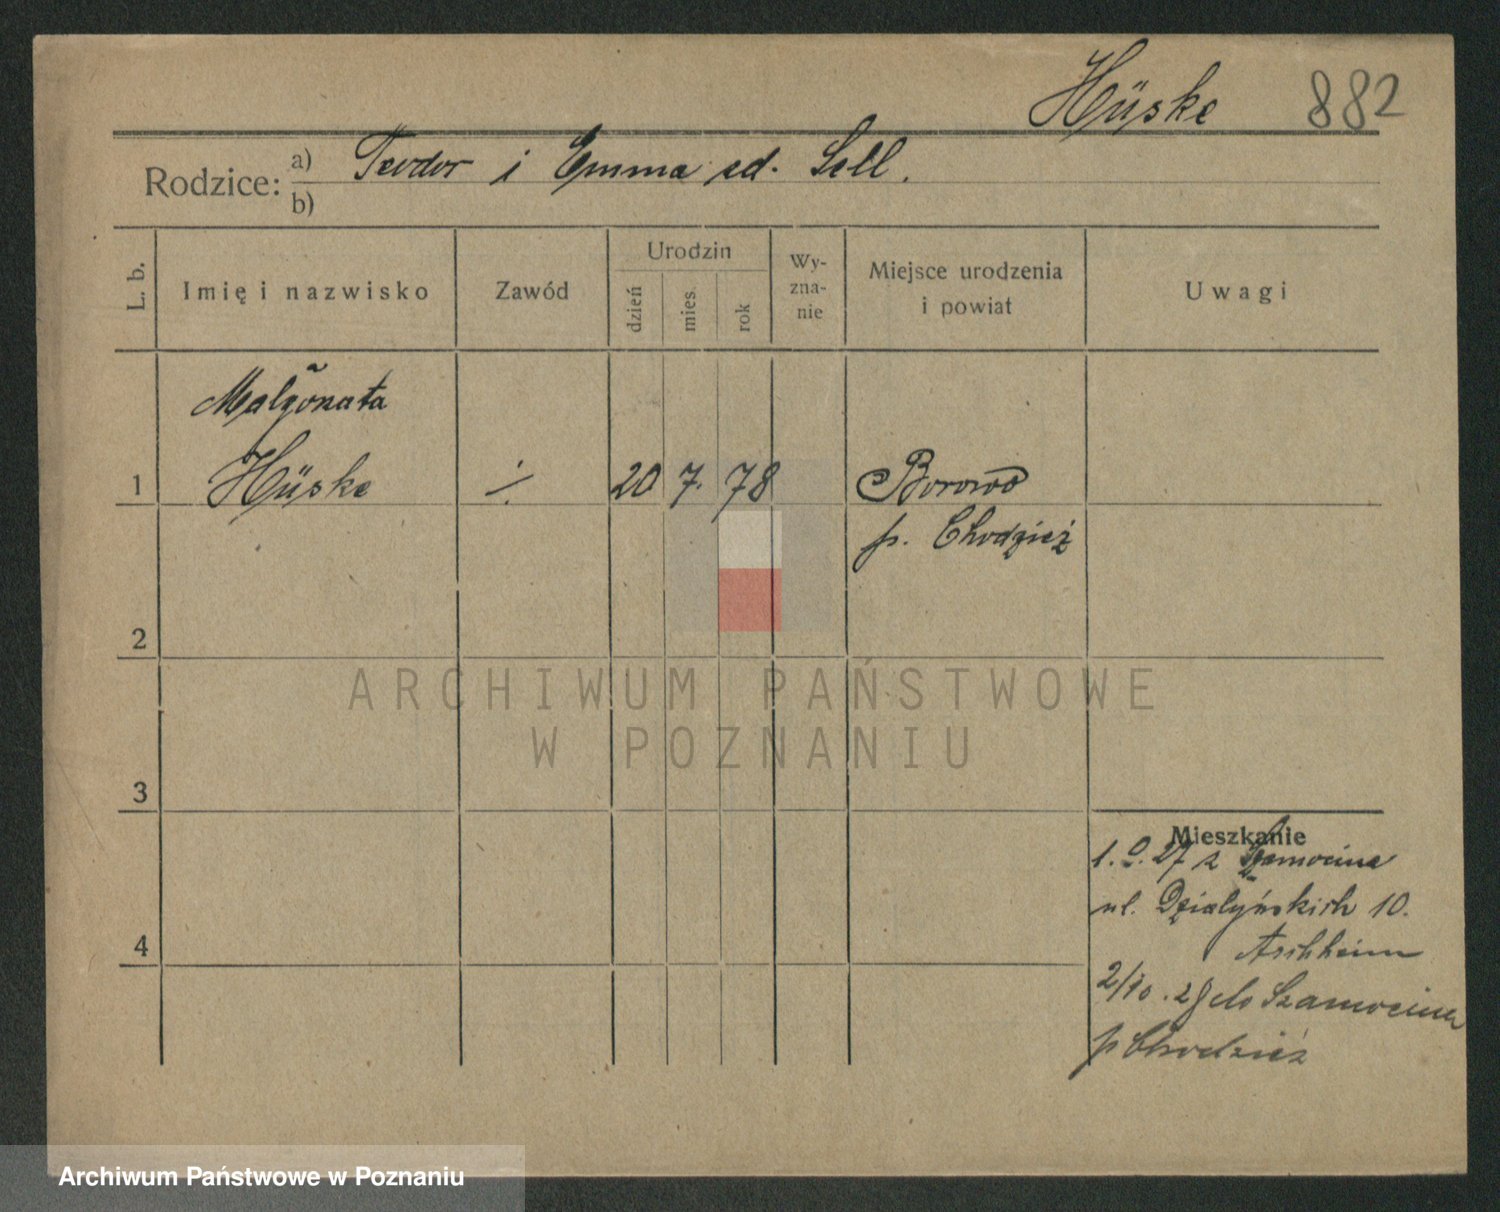 Hüske 882
Rodzice: a) Teodor i Emma zd. Sell.
b)
L. b. Imię i nazwisko Zawód Urodzin dzień mies. rok Wy-zna-nie Miejsce urodzenia i powiat Uwagi
Małgorzata
1 Hüske ./. 20 7. 78 Borowo
p. Chodzież
2
ARCHIWUM PAŃSTWOWE
W POZNANIU
3
Mieszkanie
27 z Szamocina
ul. Działyńskich 10.
Aschheim
4
2/10. 28 do Szamocina
p Chodzież
Archiwum Państwowe w Poznaniu